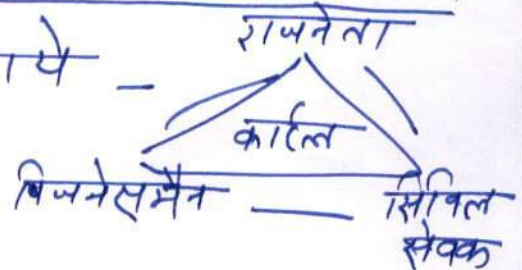 राजनेता
ाये –
कार्टल
बिजनेसमैन — सिविल
सेवक